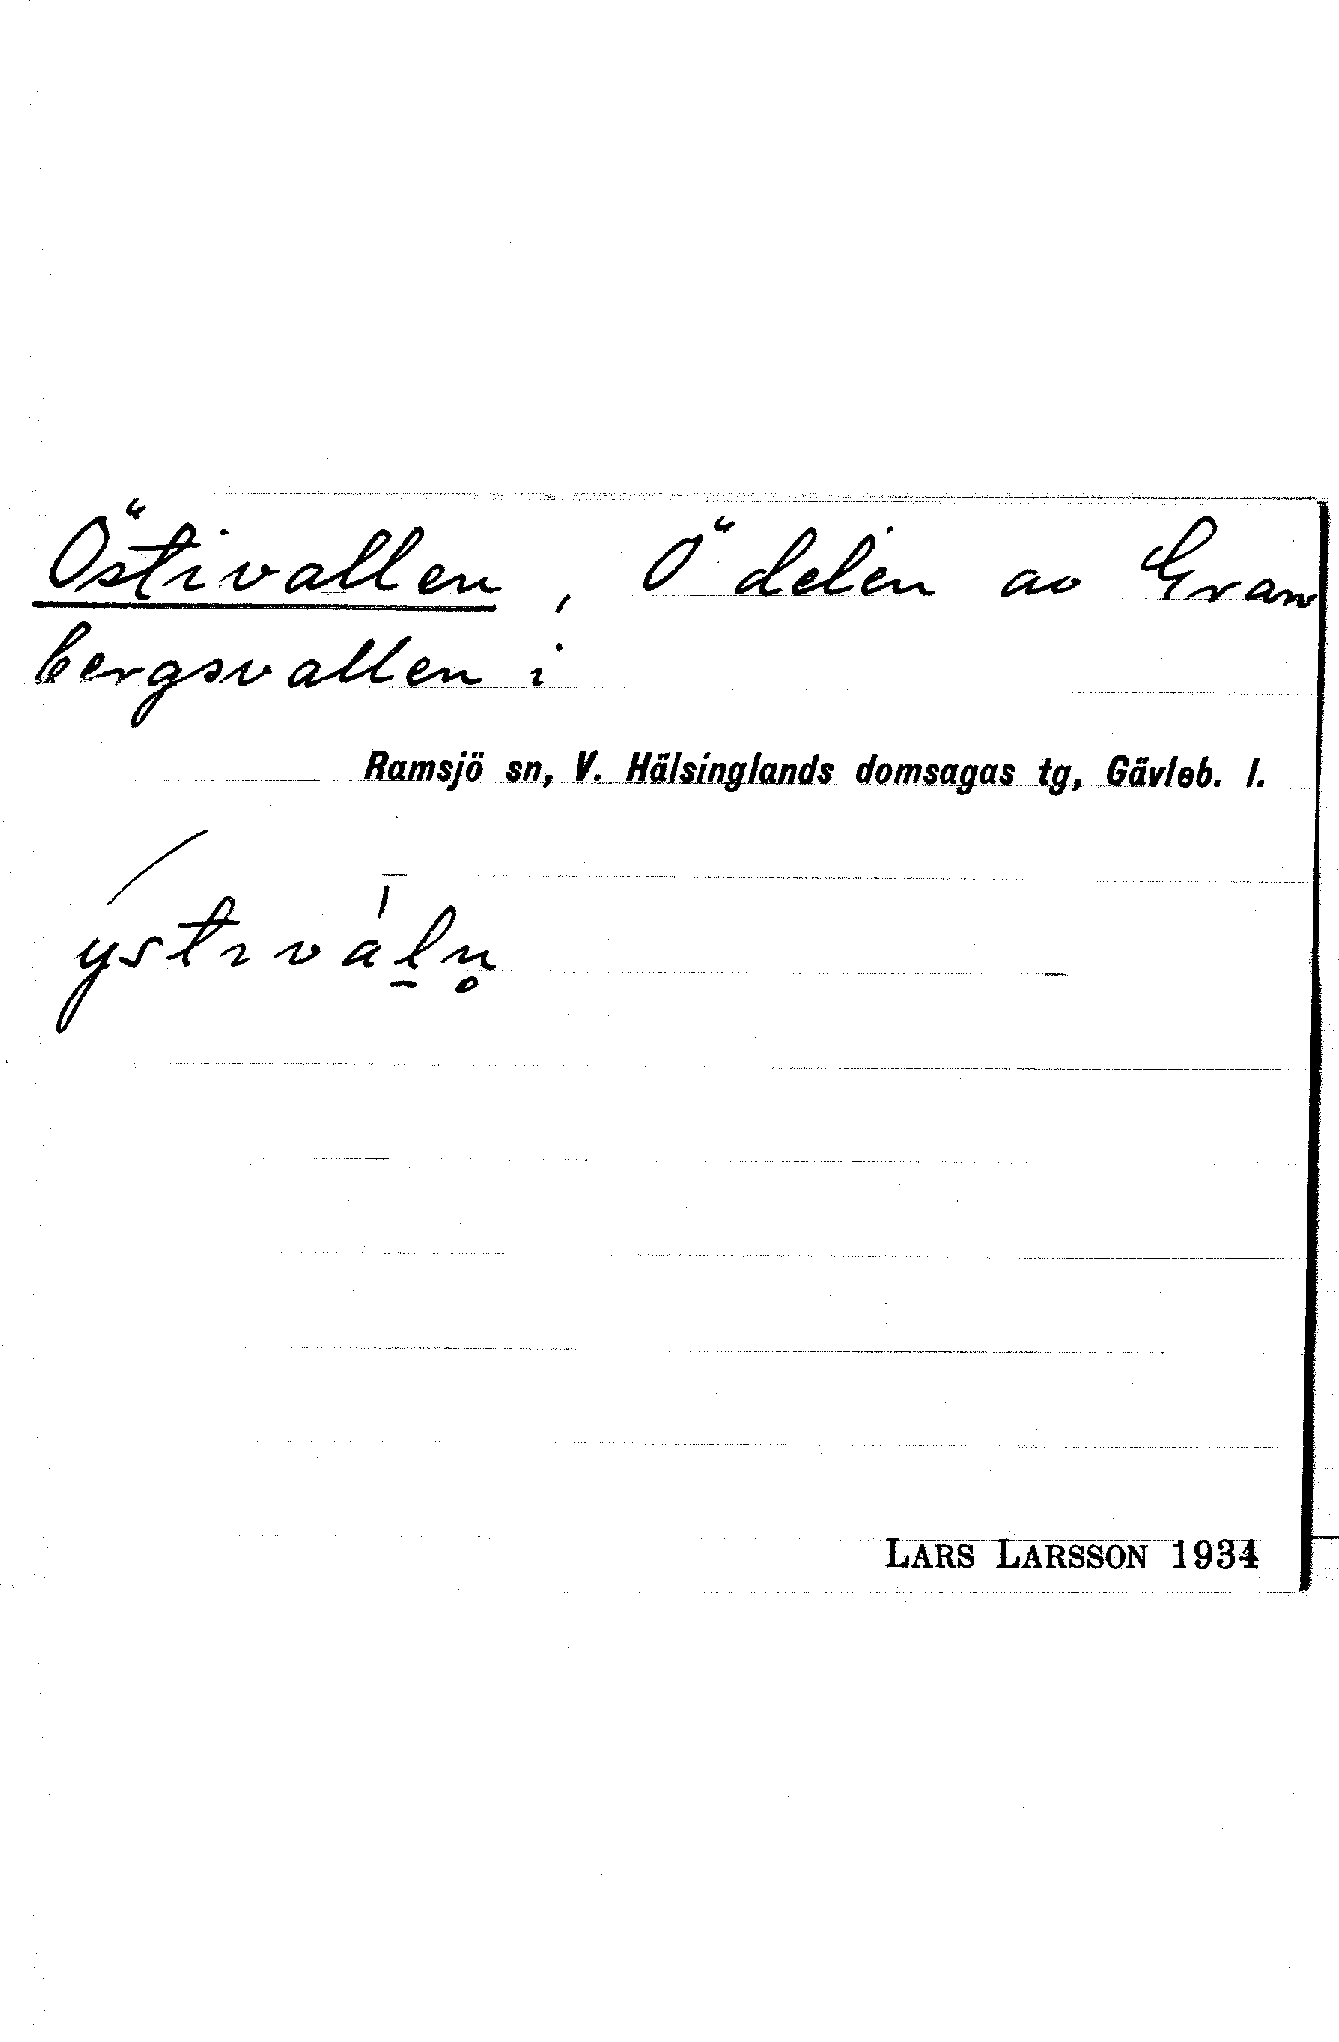 Östivallen, Ö delen av Gran
bergsvallen i
Ramsjö sn, V. Hälsinglands domsagas tg, Gävleb. l.
ýstivàl̠n̥
LARS LARSSON 1934